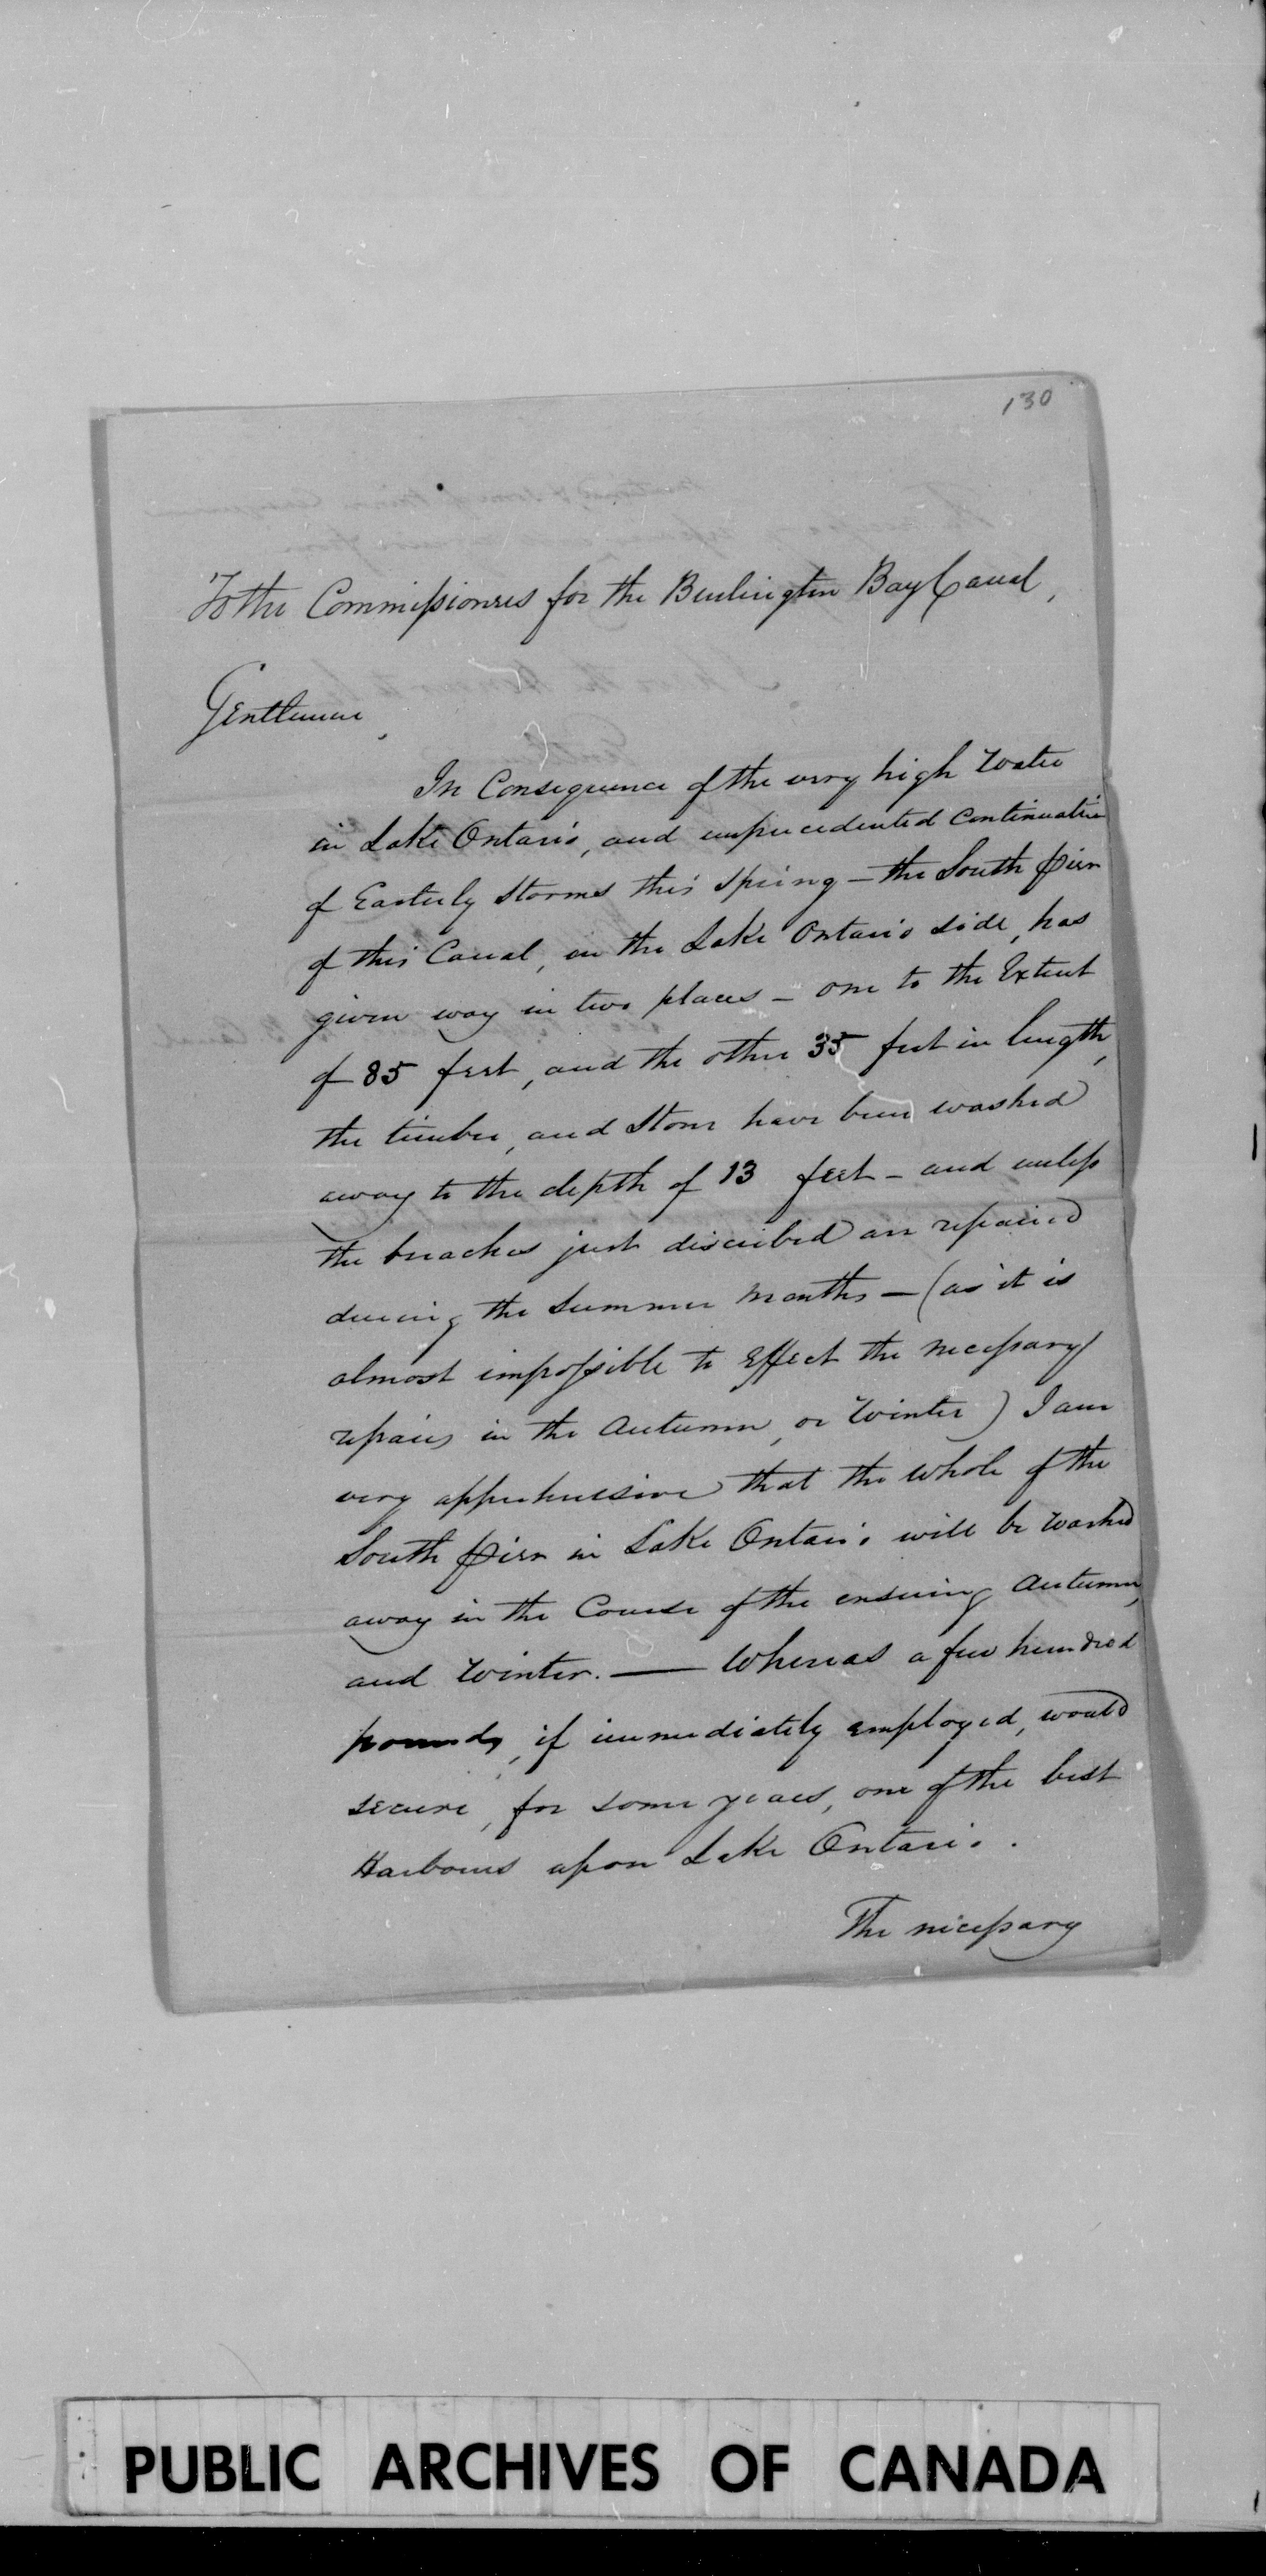 130
To the Commissioners for the Burlington Bay Canal,
Gentlemen,
In Consequence of the very high Water
in Lake Ontario, and unprecedented Continuation
of Easterly Storms this Spring — the South pier
of this Canal, on the Lake Ontario side, has
given way in two places — one to the Extent
of 85 feet, and the other 35 feet in length,
the timber, and Stone have been washed
away to the depth of 13 feet — and unless
the breaches just discribed are repaired
during the Summer Months — (as it is
almost impossible to Effect the necessary
repairs in the Autumn, or Winter) I am
very apprehensive that the whole of the
South pier in Lake Ontario will be washed
away in the Course of the ensuing Autumn,
and Winter. — Whereas a few hundred
pounds, if immediately employed, would
secure, for some years, one of the best
Harbours upon Lake Ontario.
The necessary
PUBLIC ARCHIVES OF CANADA